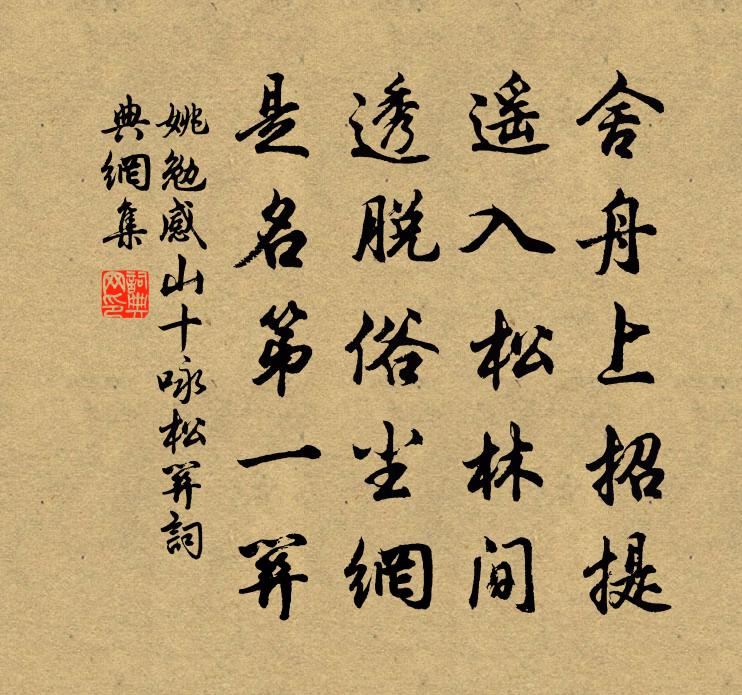 舍舟上招提
遥入松林間
透脫俗尘網
是名第一关
姚勉感山十咏松关詞
典網集
詞典
网印